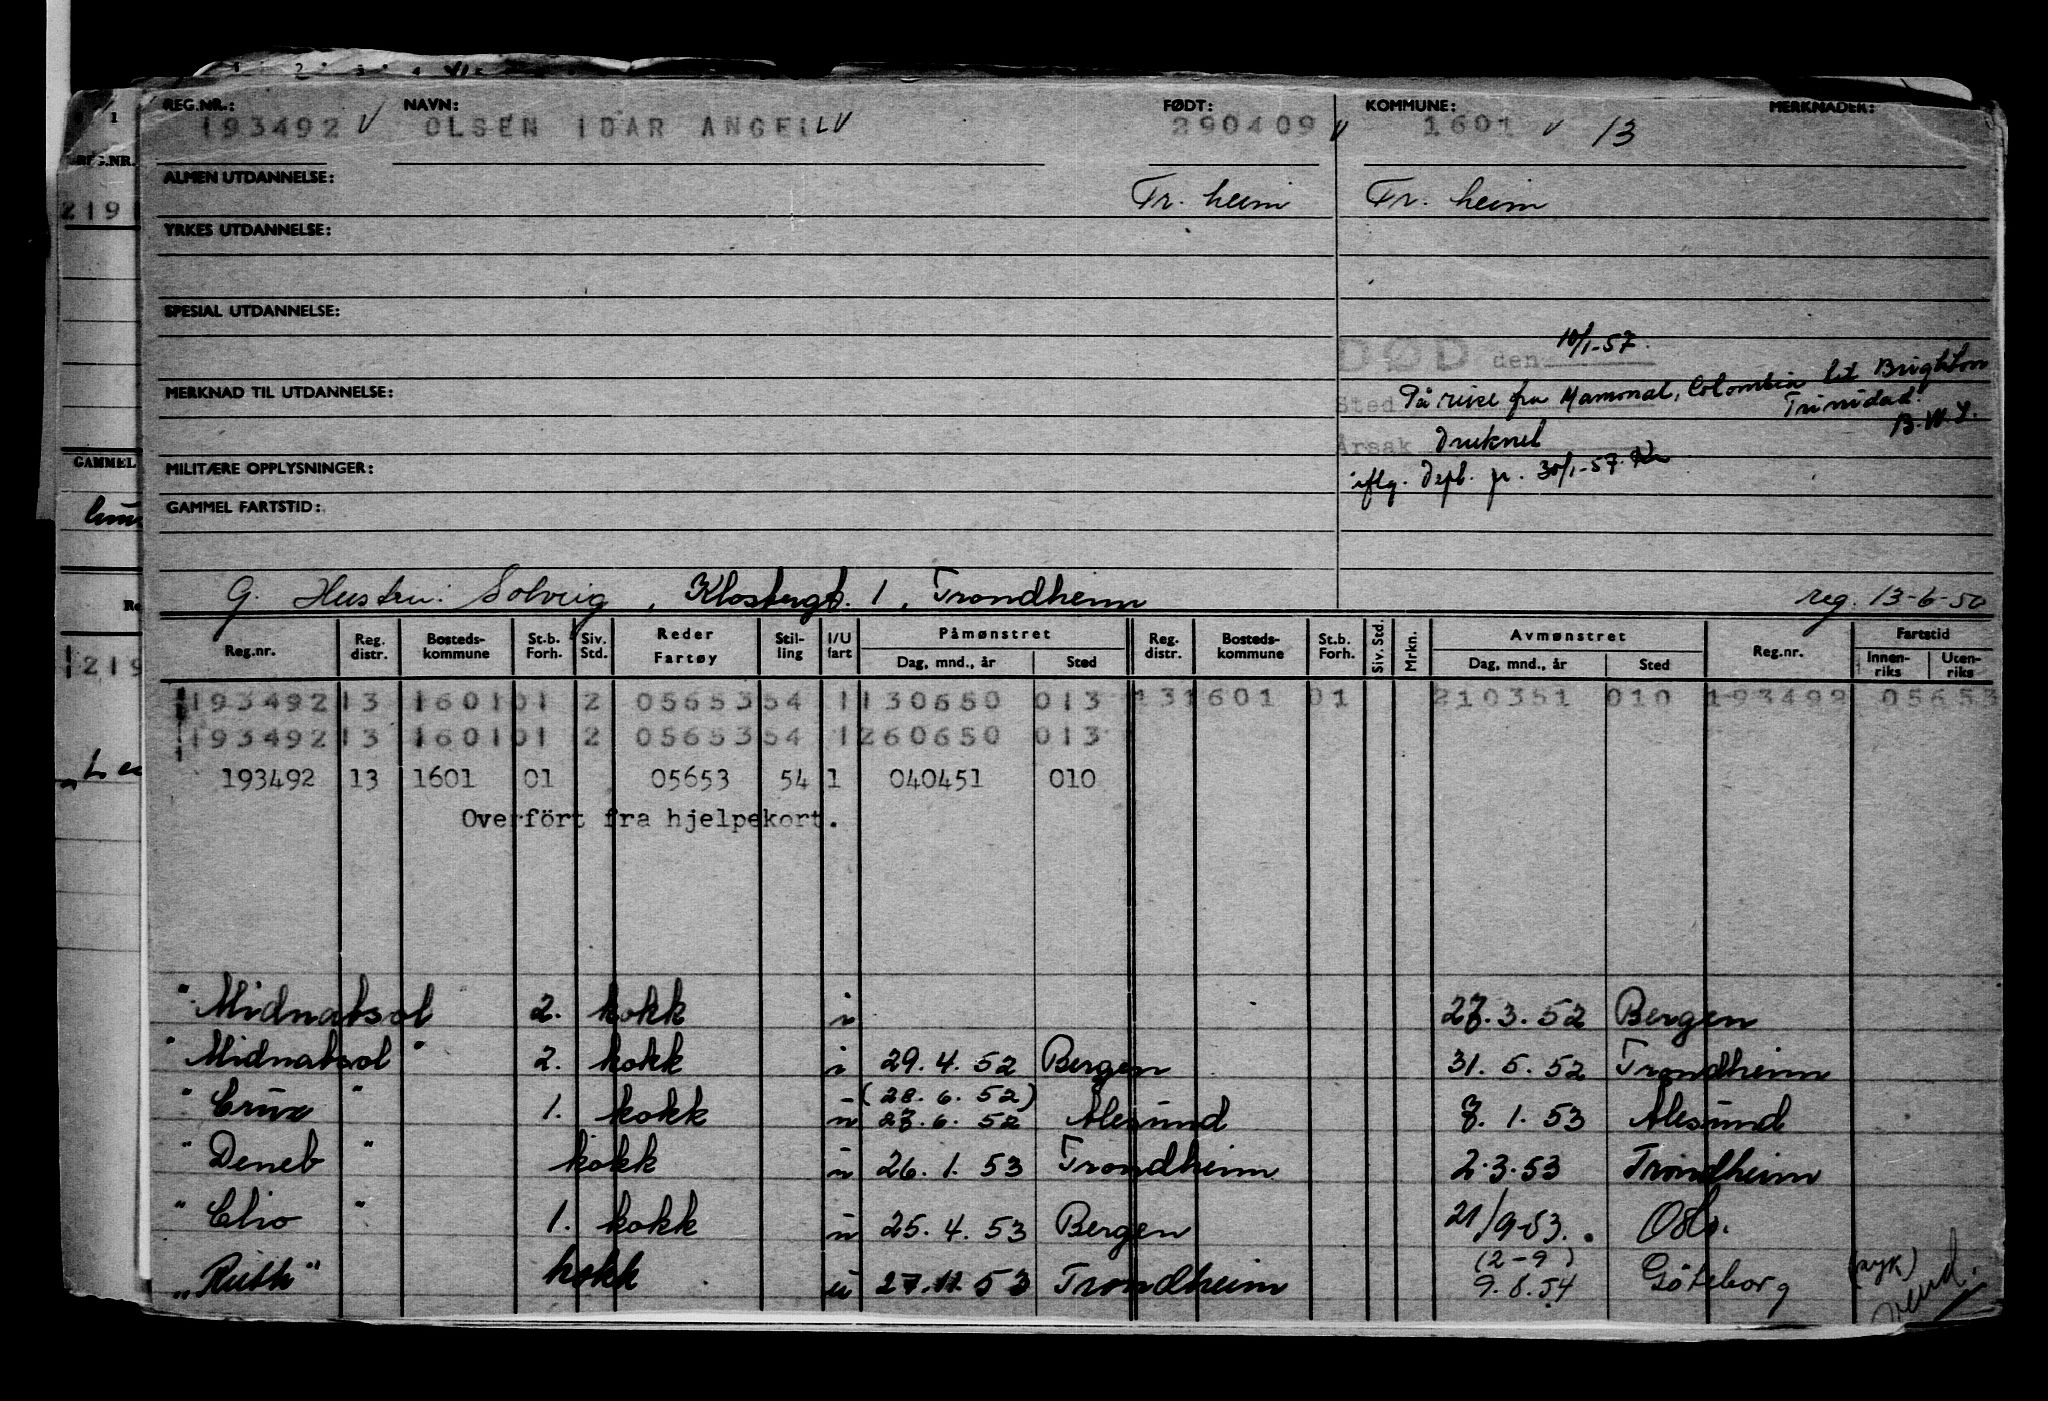 REG.NR.: NAVN: FØDT: KOMMUNE: MERKNADER:
193492 V OLSEN IDAR ANGELL V 290409 V 1601 V 13
ALMEN UTDANNELSE: Tr. heim Tr. heim
YRKES UTDANNELSE:
SPESIAL UTDANNELSE:
DØD den 10/1-57.
MERKNAD TIL UTDANNELSE:
Sted På reise fra Mamonal, Colombia til Brighton
Trinidad.
B.W.I.
Årsak Druknet
MILITÆRE OPPLYSNINGER:
iflg. Dept. jr. 30/1-57.
GAMMEL FARTSTID:
G. Hustru: Solveig, Klostergt. 1, Trondheim reg. 13-6-50
Reg.nr. Reg. distr. Bosteds-kommune St.b. Forh. Siv. Std. Reder Fartøy Stil-ling I/U fart Påmønstret Dag, mnd., år Sted Reg. distr. Bosteds-kommune St.b. Forh. Siv. Std. Mrkn. Avmønstret Dag, mnd., år Sted Reg.nr. Fartstid Innen-riks Uten-riks
193492 13 1601 01 2 05653 54 1 130650 013 13 1601 01 210351 010 193492 05653
193492 13 1601 01 2 05653 54 1 260650 013
193492 13 1601 01 05653 54 1 040451 010
Overfört fra hjelpekort.
"Midnatsol 2. kokk i 27.3.52 Bergen
"Midnatsol" 2. kokk i 29.4.52 Bergen 31.5.52 Trondheim
(28.6.52)
"Crux" 1. kokk u 27.6.52 Ålesund 7.1.53 Ålesund
"Deneb" kokk u 26.1.53 Trondheim 2.3.53 Trondheim
"Clio" 1. kokk u 25.4.53 Bergen 21/9-53. Oslo.
(2-9)
"Ruth" kokk u 27.11.53 Trondheim 9.8.54 Göteborg (syk)
vend.
1
REG.NR.
219
GAMMEL
219